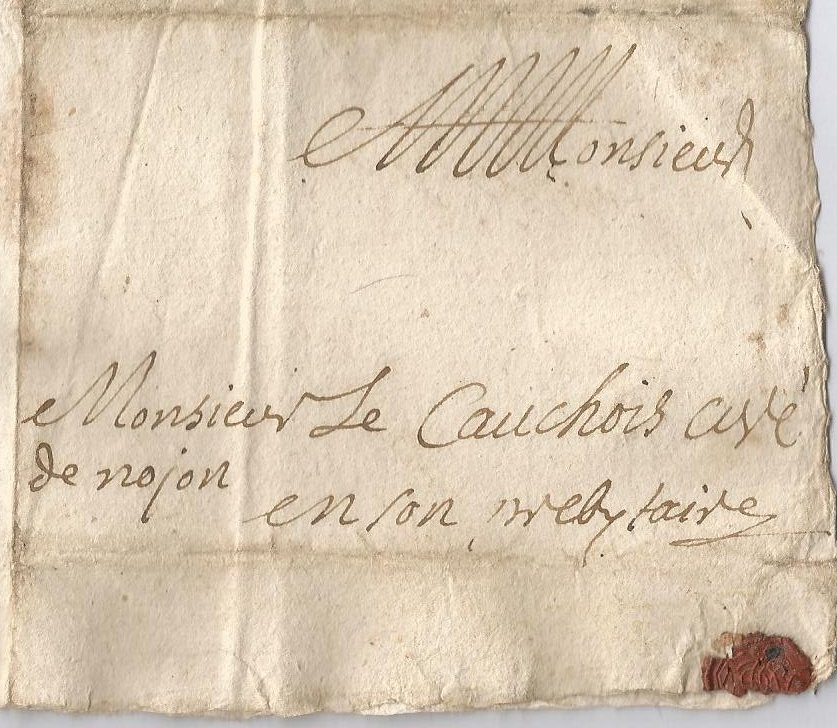 A Monsieur
Monsieur Le Cauchois curé
de nojon
en son prebytaire